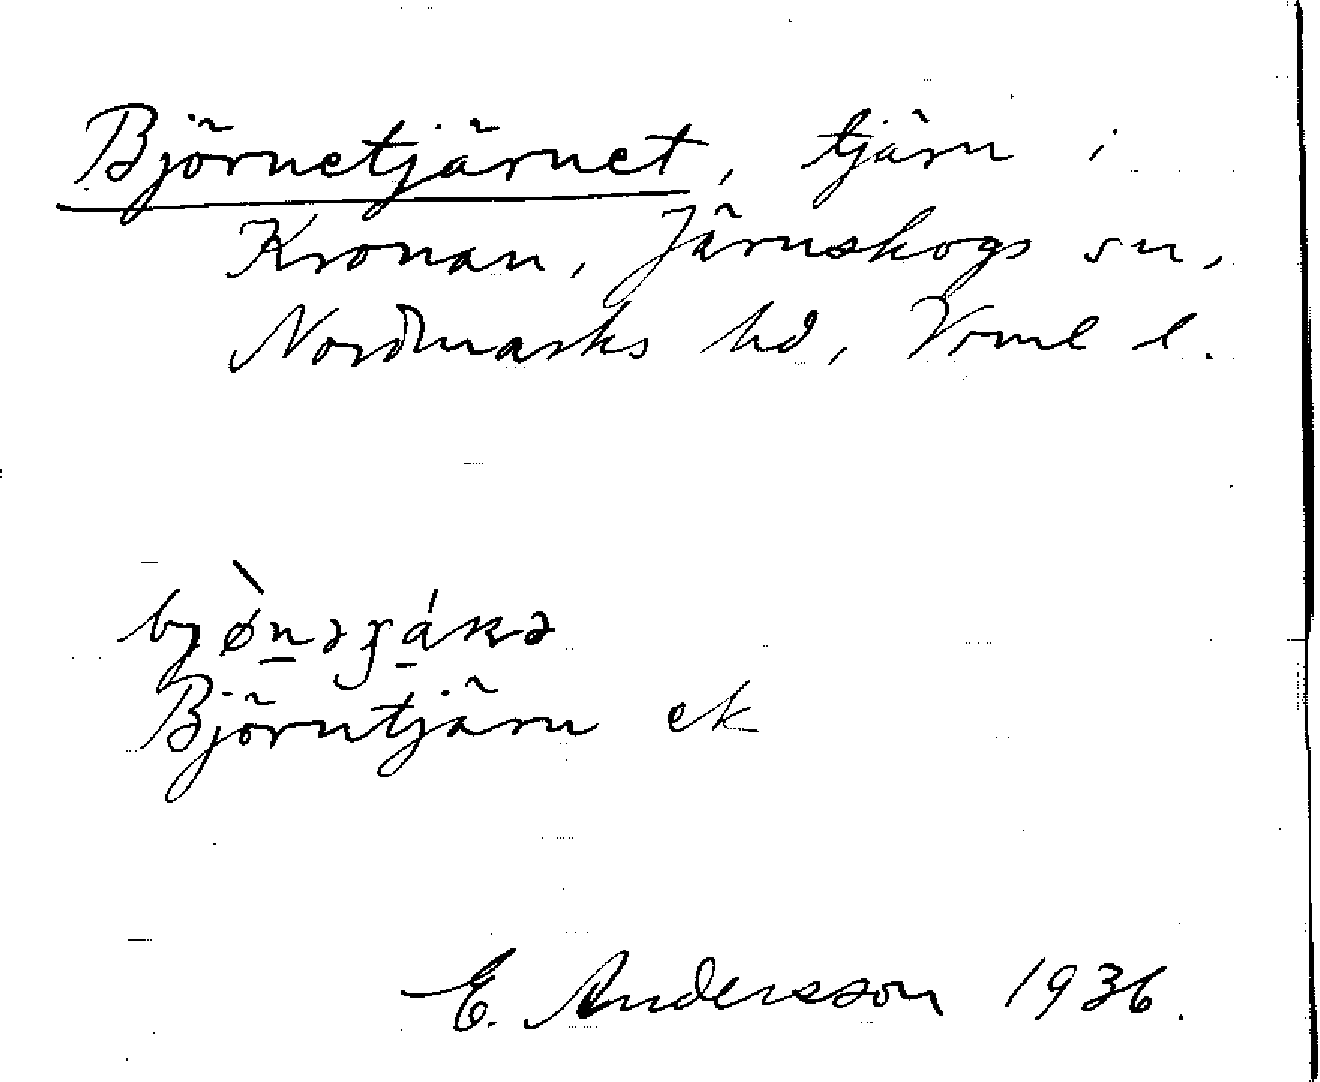 Björnetjärnet, tjärn i
Kronan, Järnskogs sn,
Nordmarks hd, Vrml l.
Björntjärn ek
E. Andersson 1936.